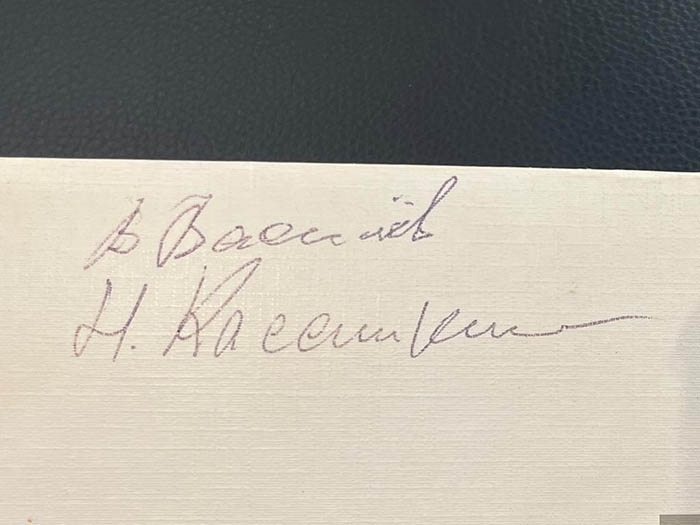 В Василёв
Н. Касаткина